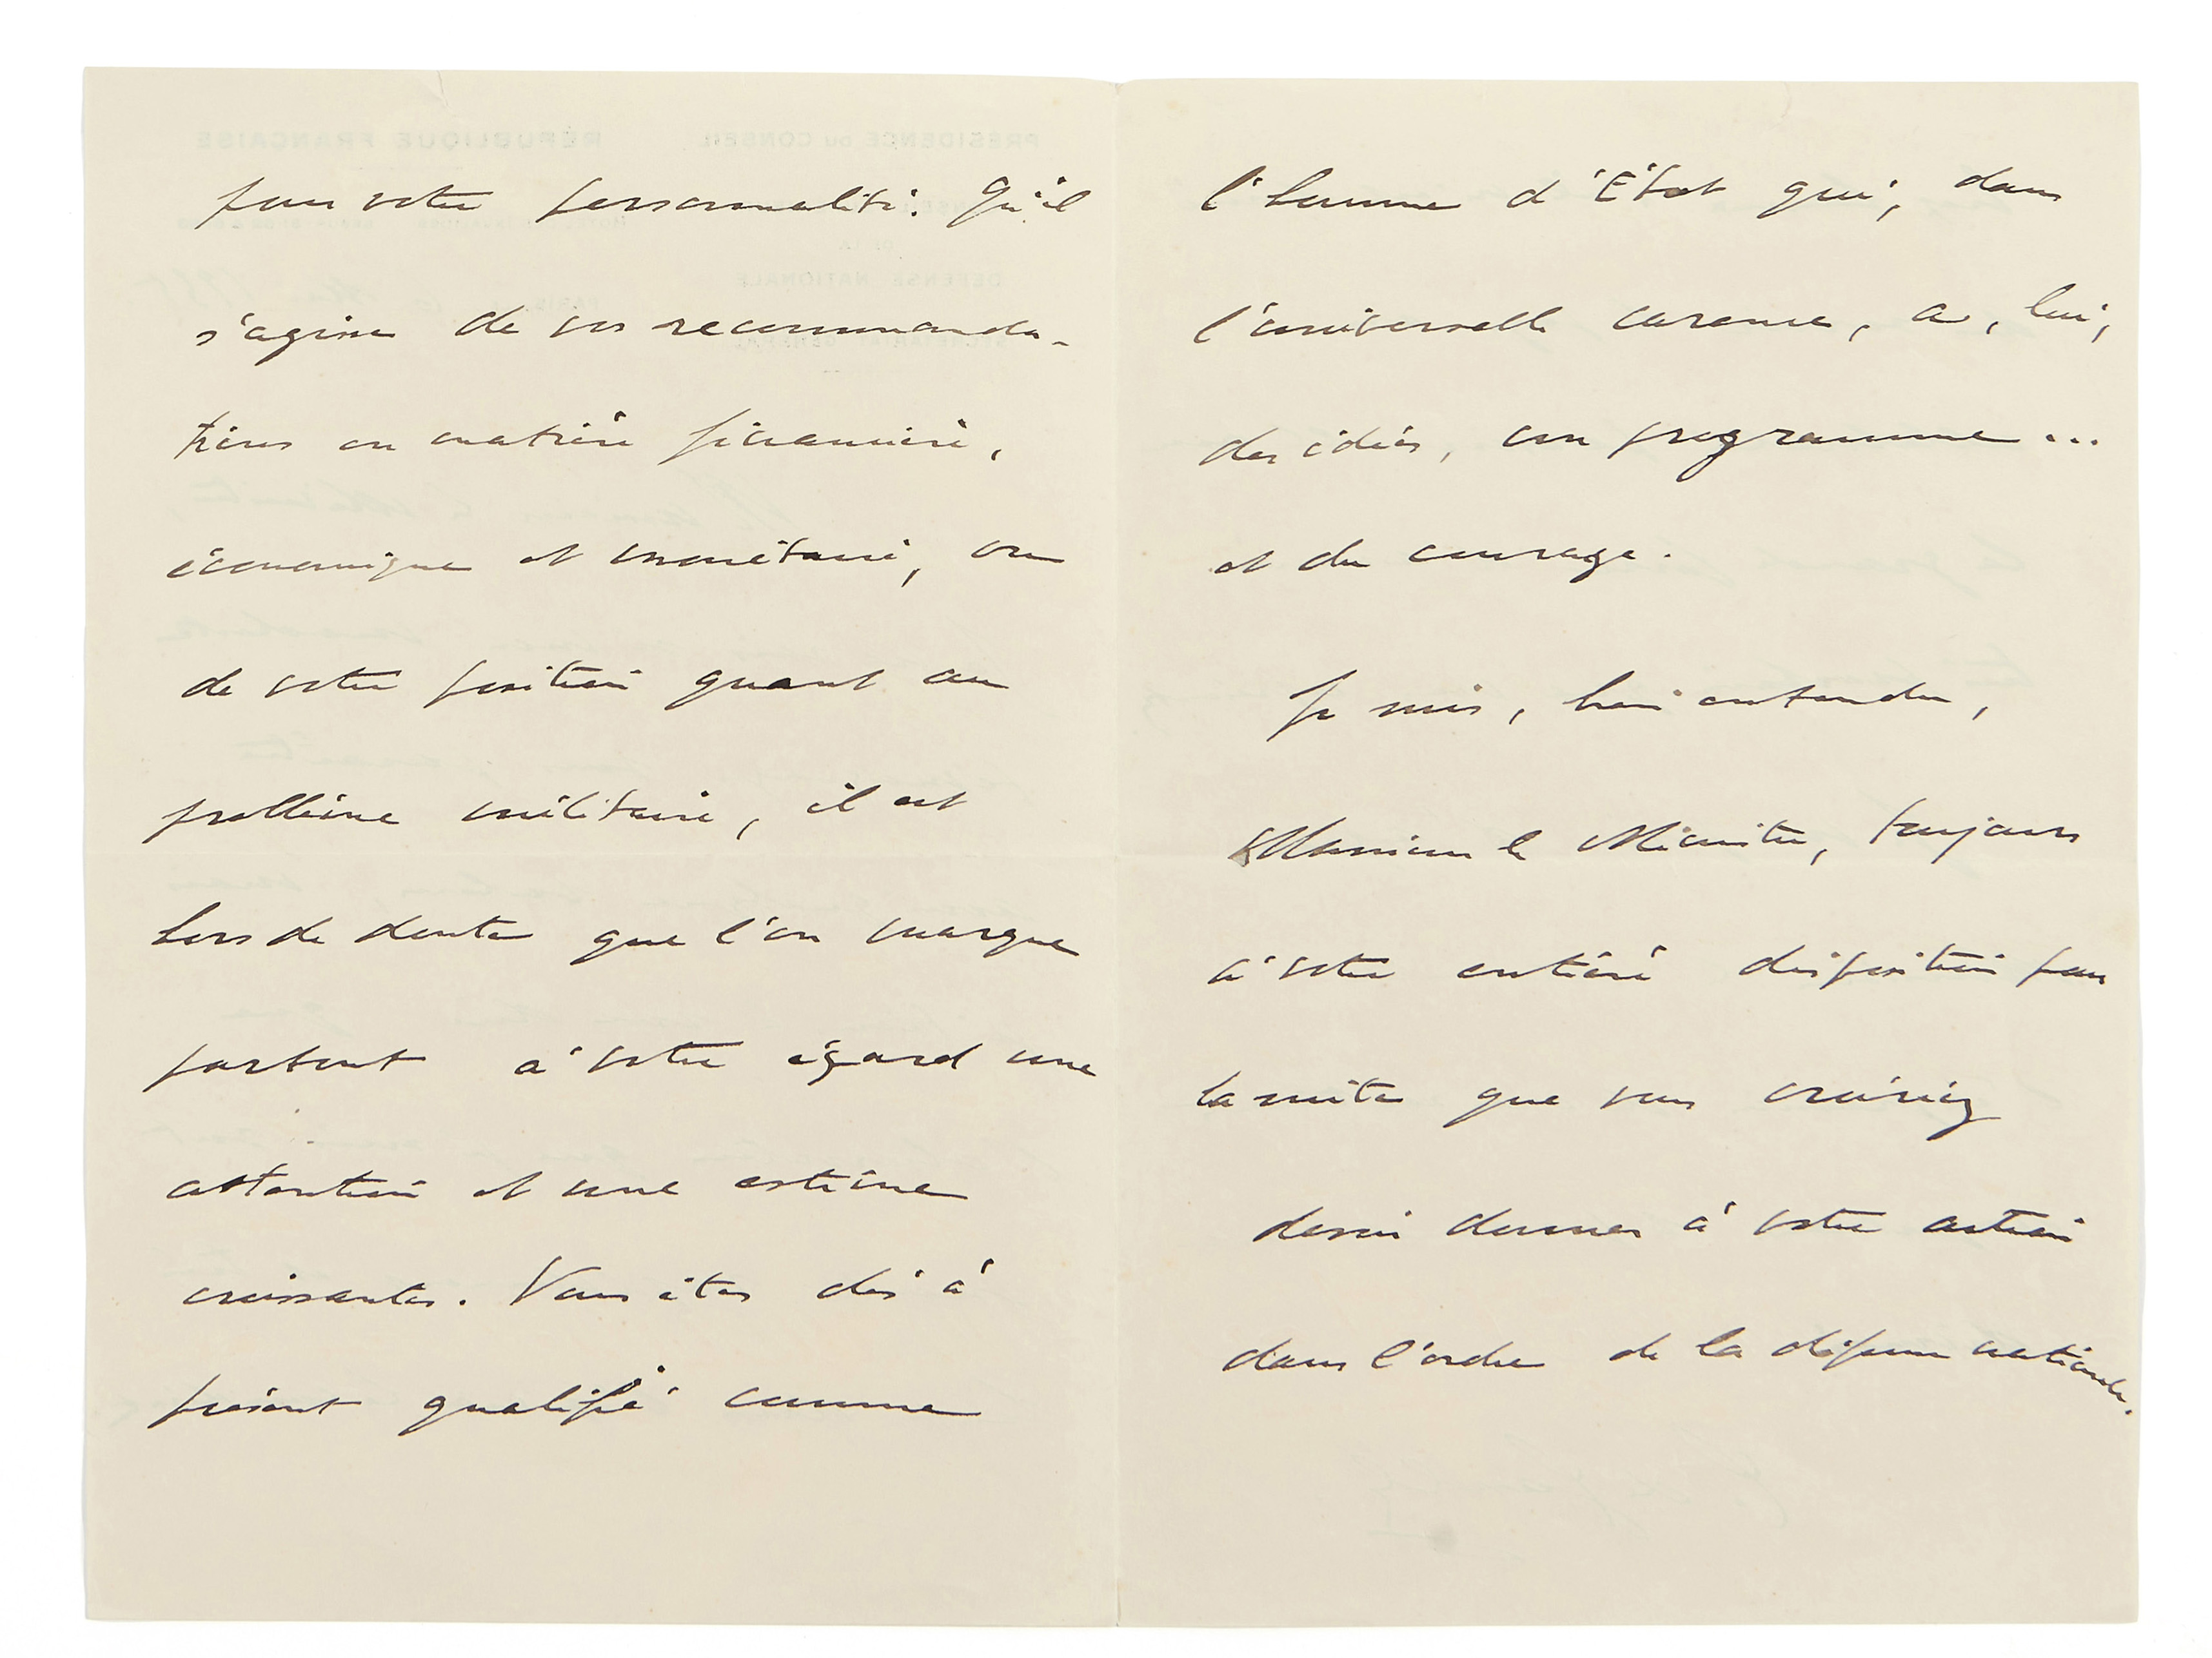 pour votre personnalité. Qu'il
s'agisse de vos recommanda-
tions en matière financière,
économique et monétaire, ou
de votre position quant au
problème militaire, il est
hors de doute que l'on marque
partout à votre égard une
attention et une estime
croissantes. Vous êtes dès à
présent qualifié comme
l'homme d'État qui, dans
l'universelle carence, a, lui,
des idées, un programme...
et du courage.
Je suis, bien entendu,
Monsieur le Ministre, toujours
à votre entière disposition pour
la suite que vous croiriez
devoir donner à votre action
dans l'ordre de la défense nationale.
RÉPUBLIQUE FRANÇAISE
PRÉSIDENCE DU CONSEIL
DE LA
DÉFENSE NATIONALE
SECRÉTARIAT GÉNÉRAL